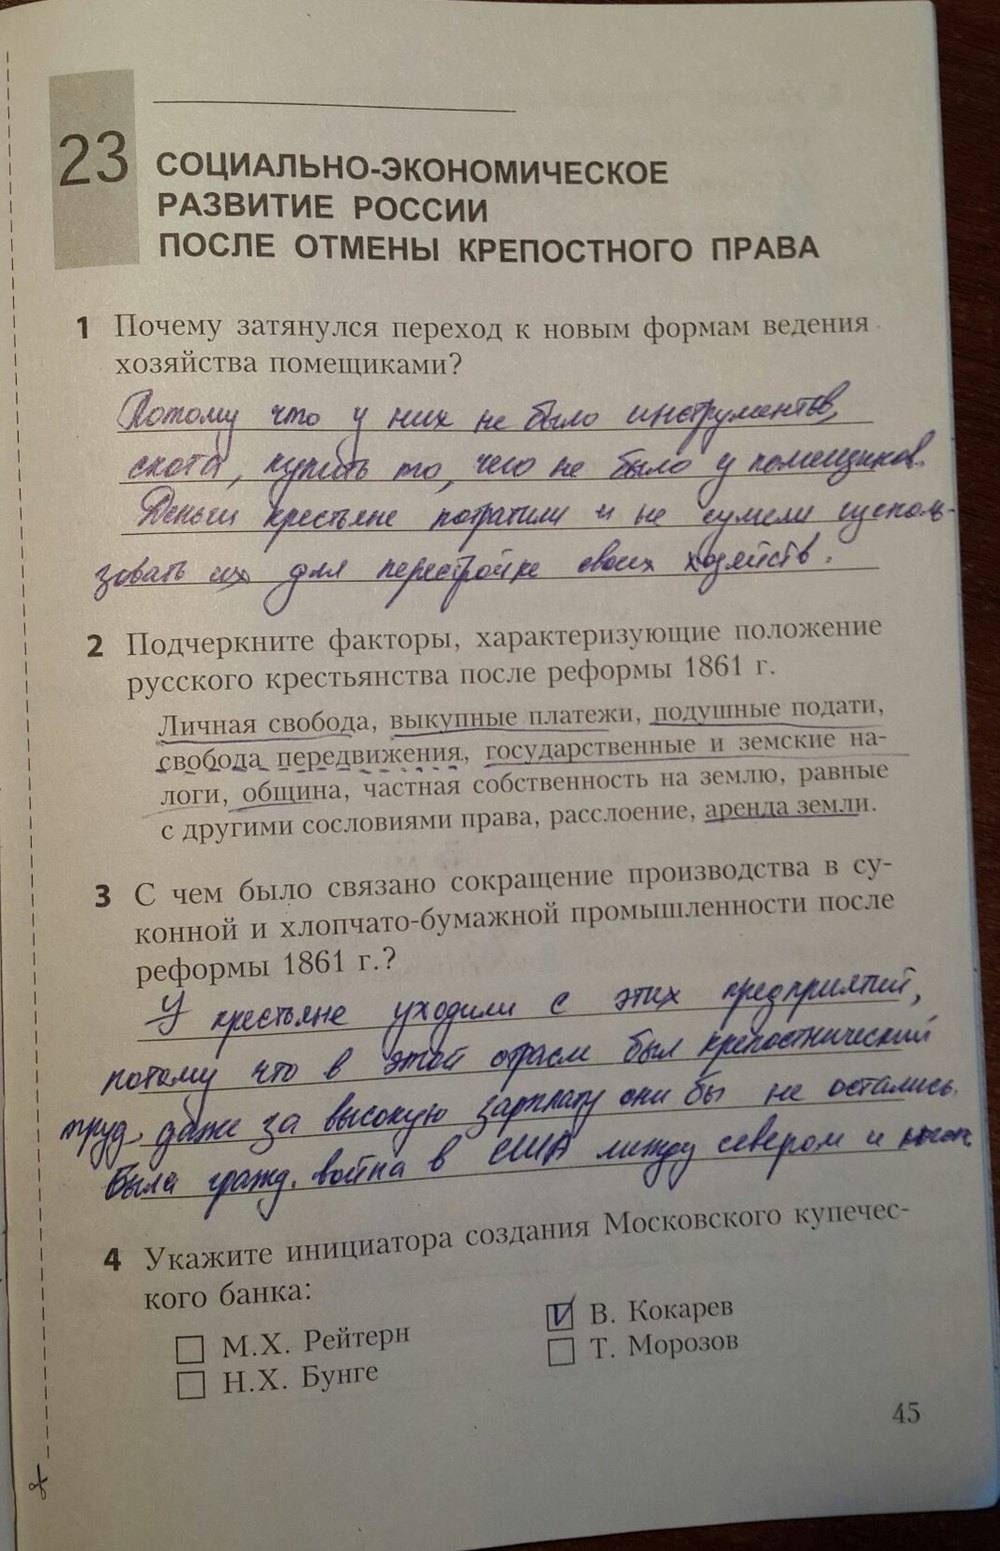 23
СОЦИАЛЬНО-ЭКОНОМИЧЕСКОЕ
РАЗВИТИЕ РОССИИ
ПОСЛЕ ОТМЕНЫ КРЕПОСТНОГО ПРАВА
1 Почему затянулся переход к новым формам ведения
хозяйства помещиками?
Потому что у них не было инструментов,
скота, купить то, чего не было у помещиков.
Деньги крестьяне потратили и не сумели исполь-
зовать их для перестройке своих хозяйств.
2 Подчеркните факторы, характеризующие положение
русского крестьянства после реформы 1861 г.
Личная свобода, выкупные платежи, подушные подати,
свобода передвижения, государственные и земские на-
логи, община, частная собственность на землю, равные
с другими сословиями права, расслоение, аренда земли.
3 С чем было связано сокращение производства в су-
конной и хлопчато-бумажной промышленности после
реформы 1861 г.?
У крестьяне уходили с этих предприятий,
потому что в этой отрасли был крепостнический
труд, даже за высокую зарплату они бы не остались.
Была гражд. война в США между севером и
4 Укажите инициатора создания Московского купечес-
кого банка:
М.Х. Рейтерн
V В. Кокарев
Н.Х. Бунге
Т. Морозов
45